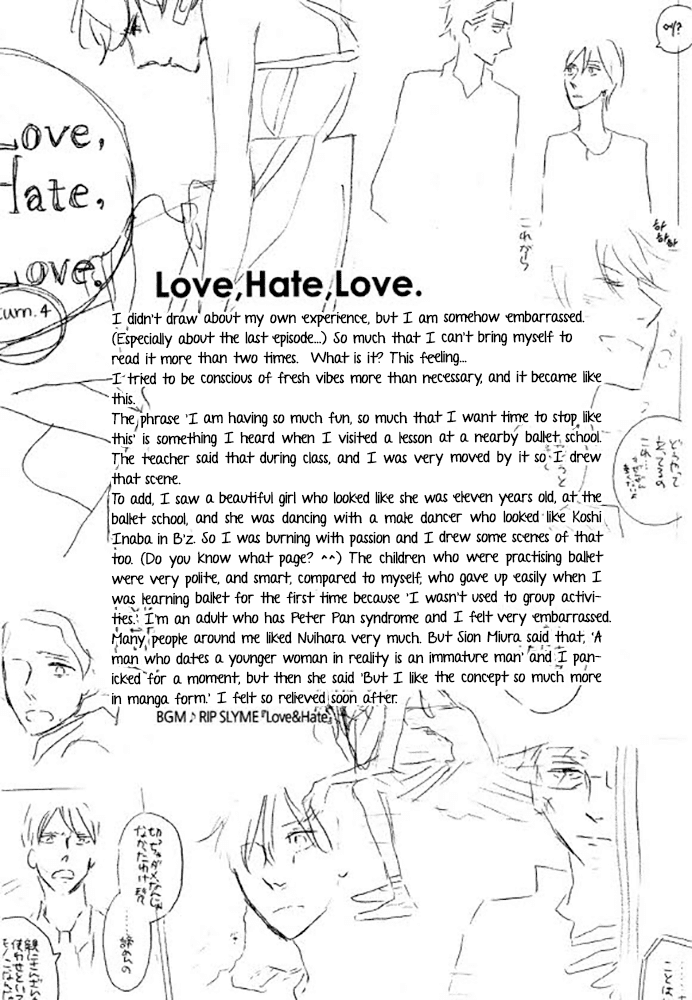 Love,
Hate,
Love.
turn.4
Love,Hate,Love.
I didn't draw about my own experience, but I am somehow embarrassed.
(Especially about the last episode...) So much that I can't bring myself to
read it more than two times. What is it? This feeling...
I tried to be conscious of fresh vibes more than necessary, and it became like
this.
The phrase 'I am having so much fun, so much that I want time to stop like
this' is something I heard when I visited a lesson at a nearby ballet school.
The teacher said that during class, and I was very moved by it so I drew
that scene.
To add, I saw a beautiful girl who looked like she was eleven years old, at the
ballet school, and she was dancing with a male dancer who looked like Koshi
Inaba in B'z. So I was burning with passion and I drew some scenes of that
too. (Do you know what page? ^^) The children who were practising ballet
were very polite, and smart, compared to myself, who gave up easily when I
was learning ballet for the first time because 'I wasn't used to group activi-
ties.' I'm an adult who has Peter Pan syndrome and I felt very embarrassed.
Many people around me liked Nuihara very much. But Sion Miura said that, 'A
man who dates a younger woman in reality is an immature man' and I pan-
icked for a moment, but then she said 'But I like the concept so much more
in manga form.' I felt so relieved soon after.
BGM♪RIP SLYME『Love&Hate』
これから